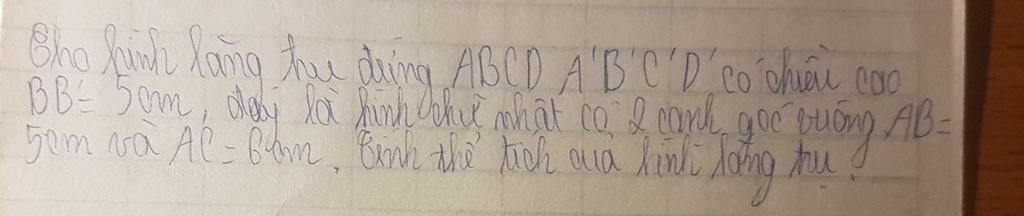 Cho hình lăng trụ đứng ABCD A'B'C'D' có chiều cao
BB' = 5cm, đáy là hình chữ nhật có 2 cạnh góc vuông AB =
5cm và AC = 6cm. Tính thể tích của hình lăng trụ.